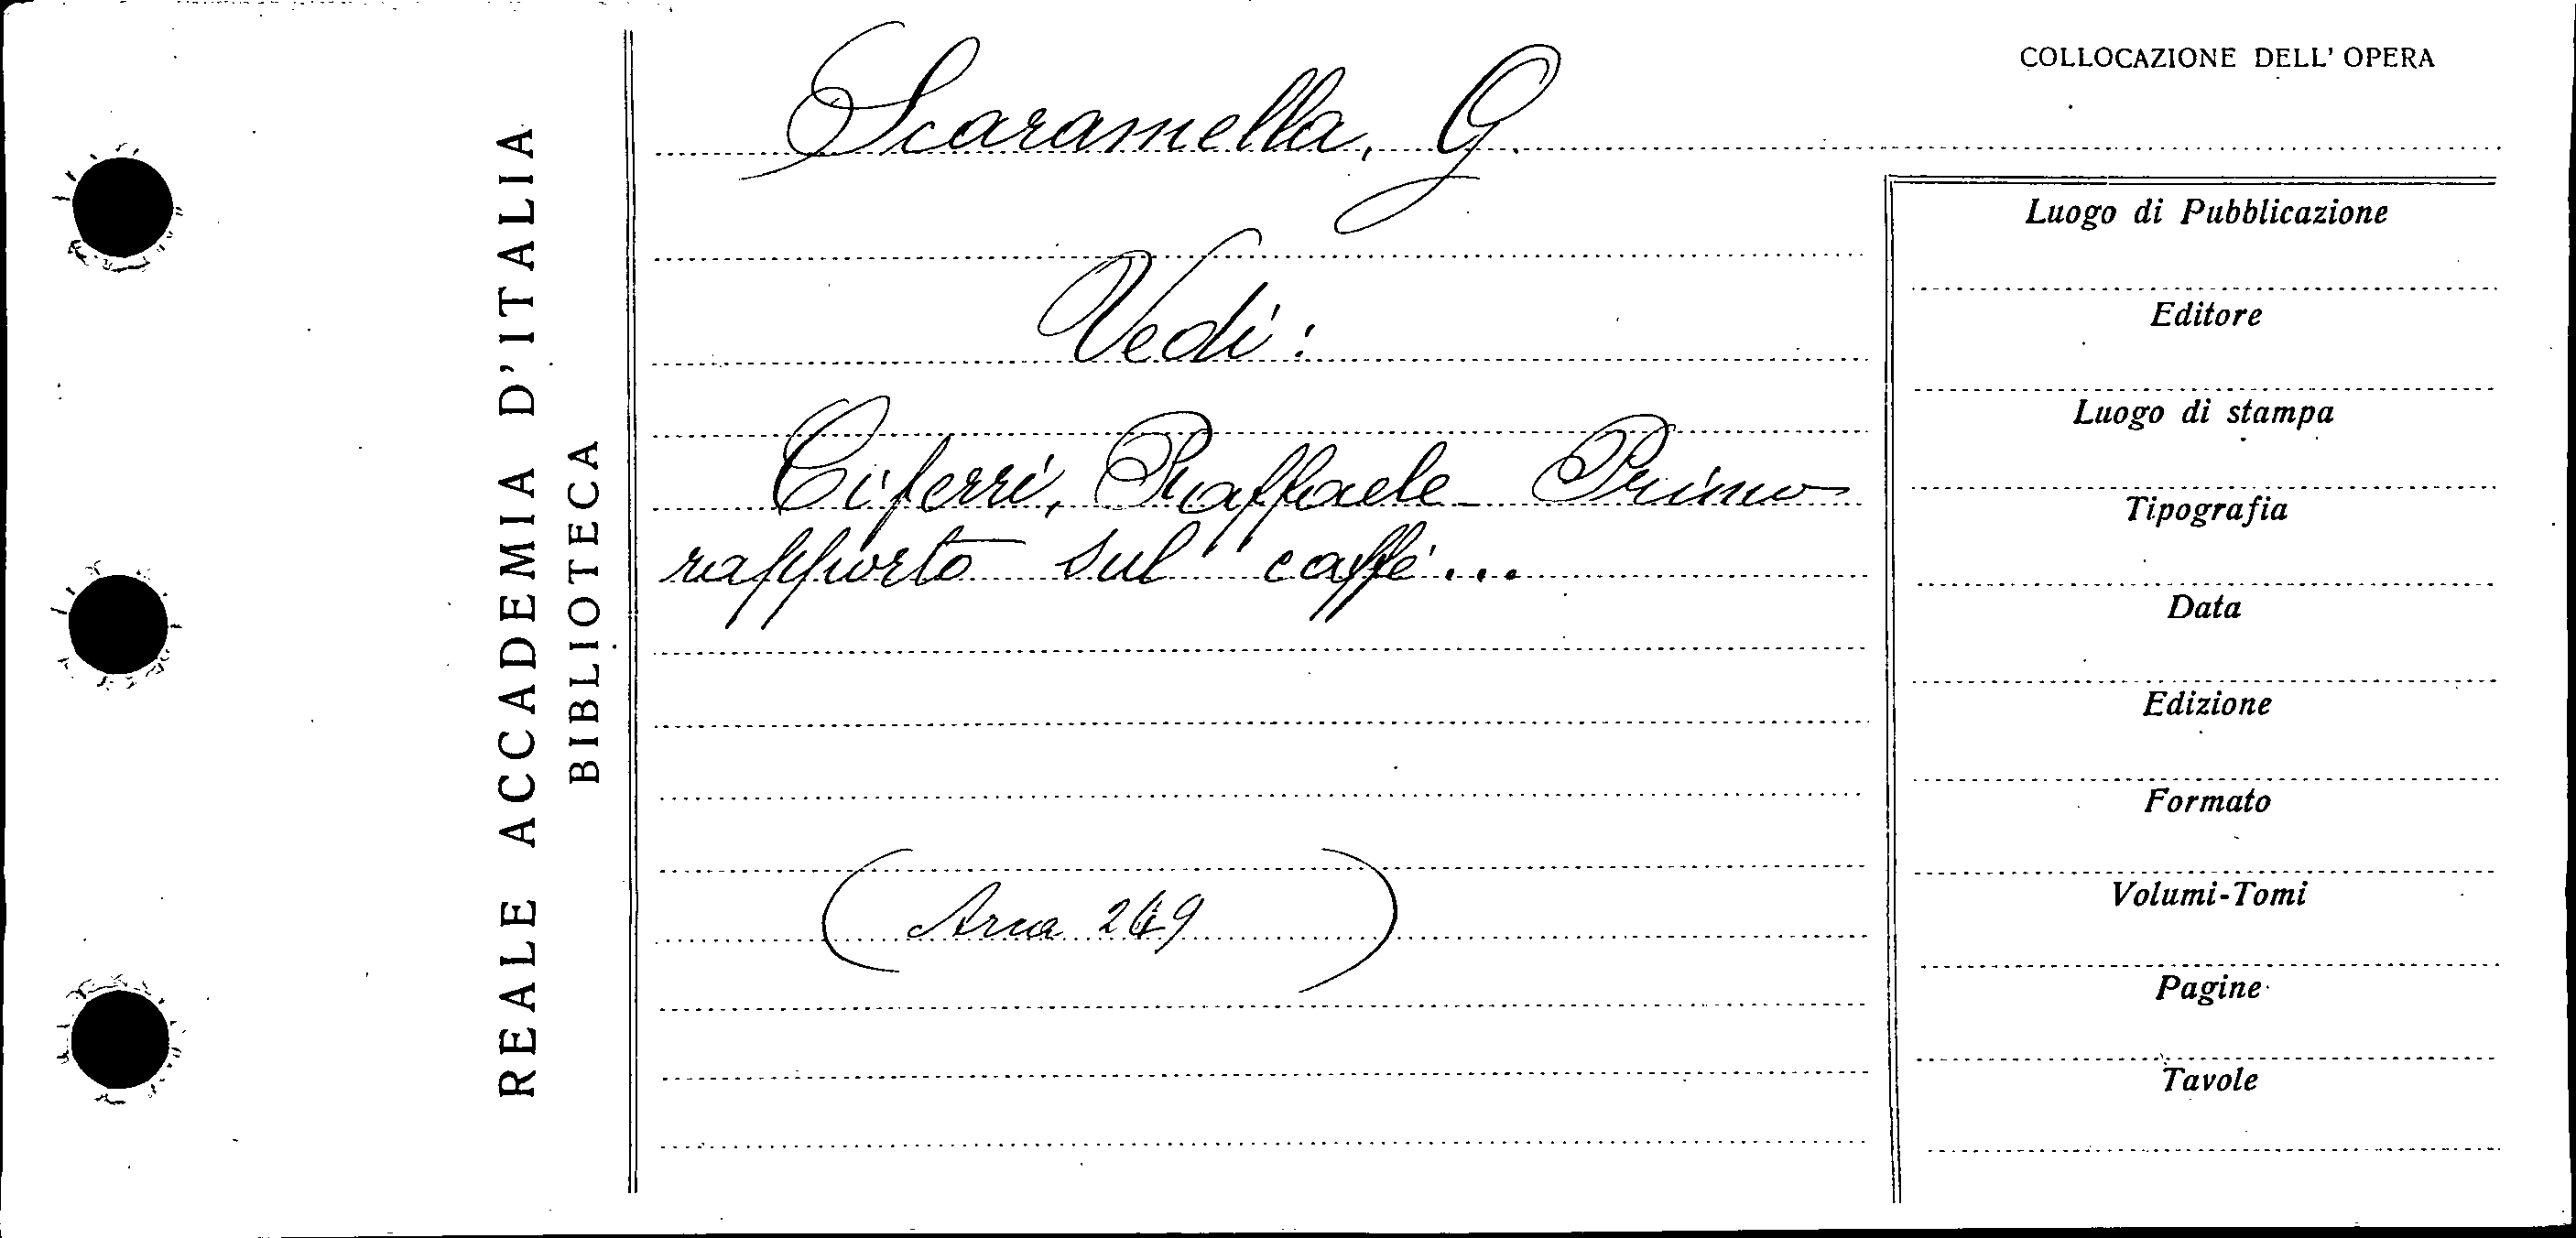 REALE ACCADEMIA D'ITALIA
BIBLIOTECA
COLLOCAZIONE DELL' OPERA
Scaramella, G.
Vedi:
Ciferri, Raffaele - Primo
rapporto sul caffè...
(Arca )
Luogo di Pubblicazione
Editore
Luogo di stampa
Tipografia
Data
Edizione
Formato
Volumi-Tomi
Pagine
Tavole